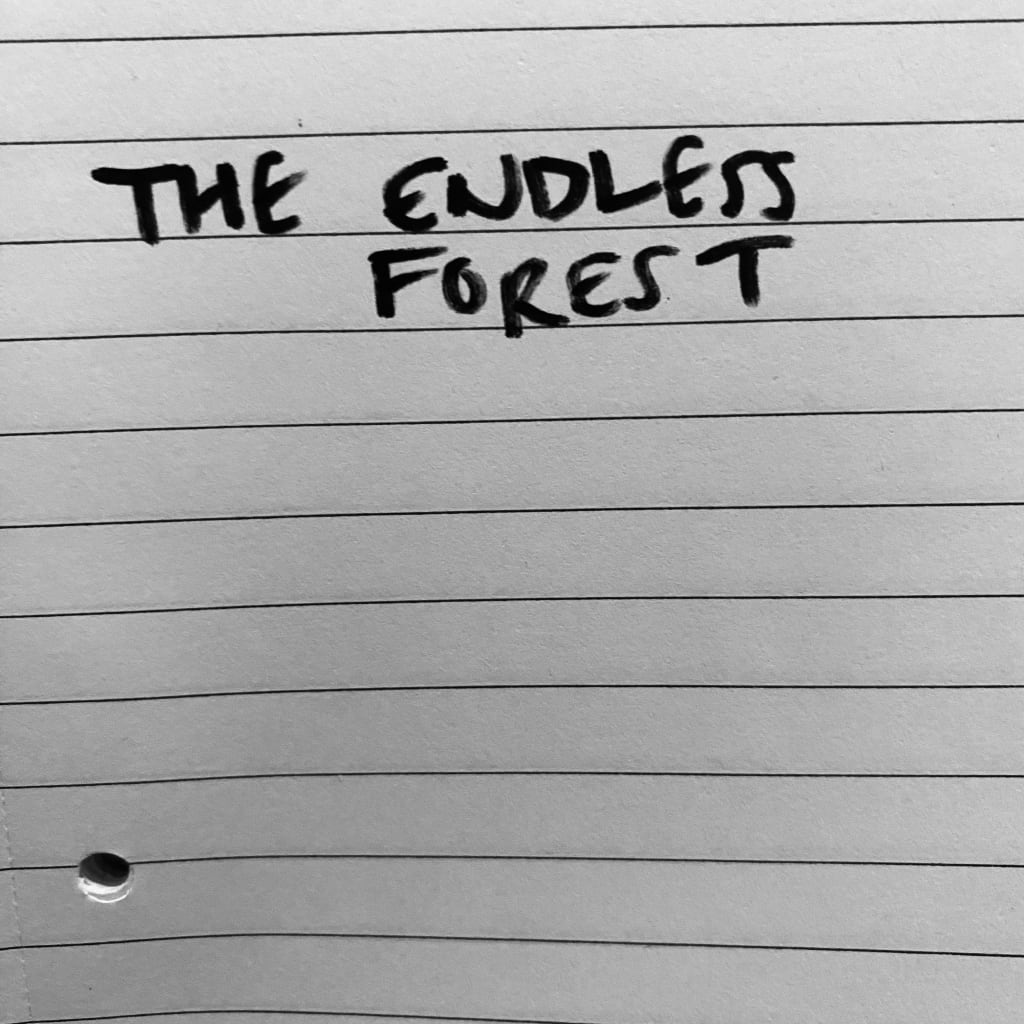 THE ENDLESS
FOREST